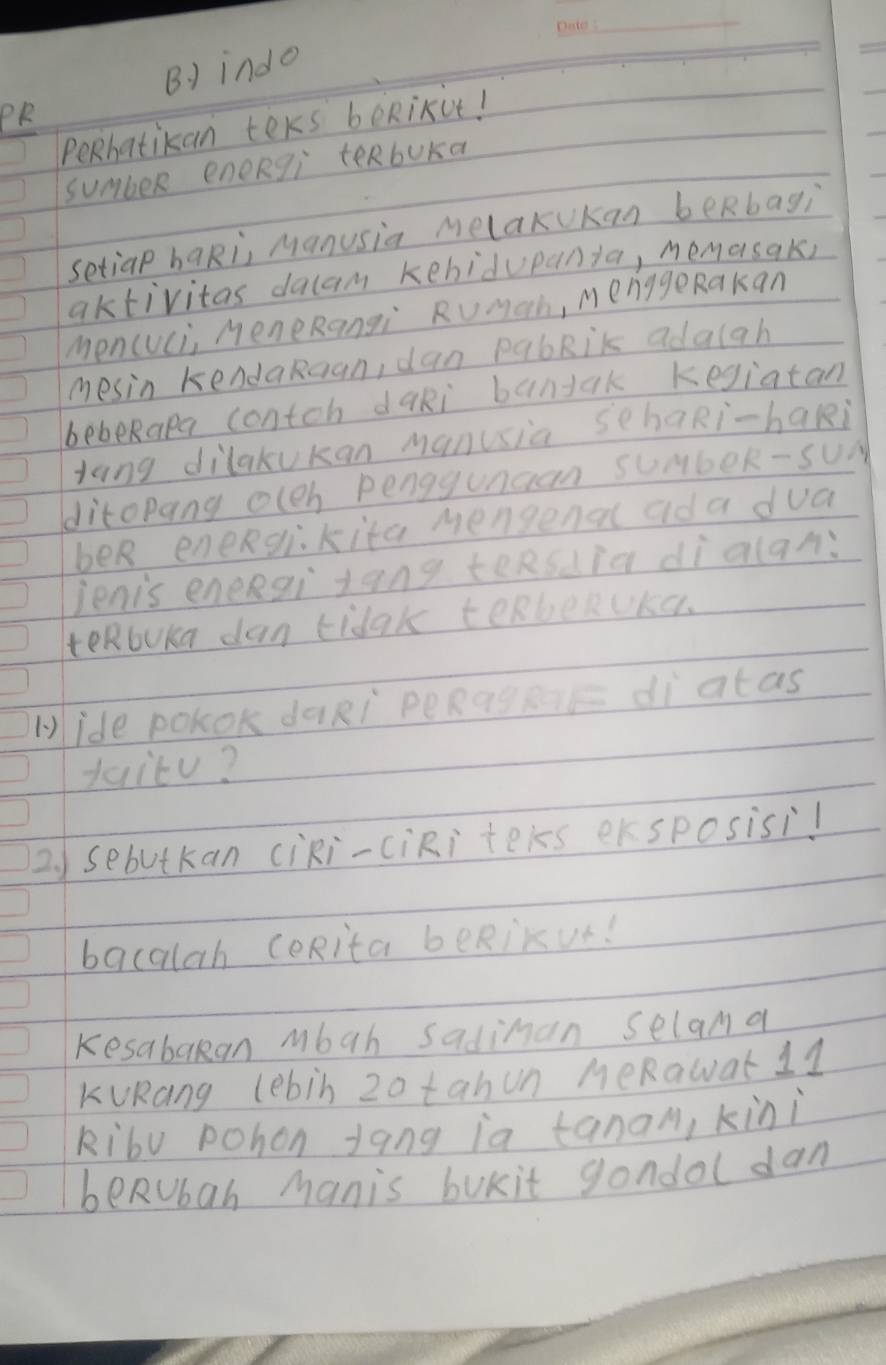 Date :
B.) indo
PR
Perhatikan teks berikut!
sumber energi terbuka
setiap hari, Manusia Melakukan berbagi
aktivitas dalam kehidupanya, memasak,
mencuci, Menerangi Rumah, menggerakan
mesin kendaraan, dan pabrik adalah
beberapa contoh dari banyak kegiatan
yang dilakukan manusia sehari-hari
ditopang oleh penggunaan sumber-sum
ber energi. Kita mengenal ada dua
jenis energi yang tersdia di alam:
terbuka dan tidak terberuka.
1.) ide pokok dari peragraf di atas
yaitu?
2.) sebutkan ciri-ciri teks eksposisi!
bacalah cerita berikut!
Kesabaran Mbah Sadiman selama
kurang lebih 20 tahun Merawat 11
Ribu pohon yang ia tanam, kini
berubah manis bukit gondol dan